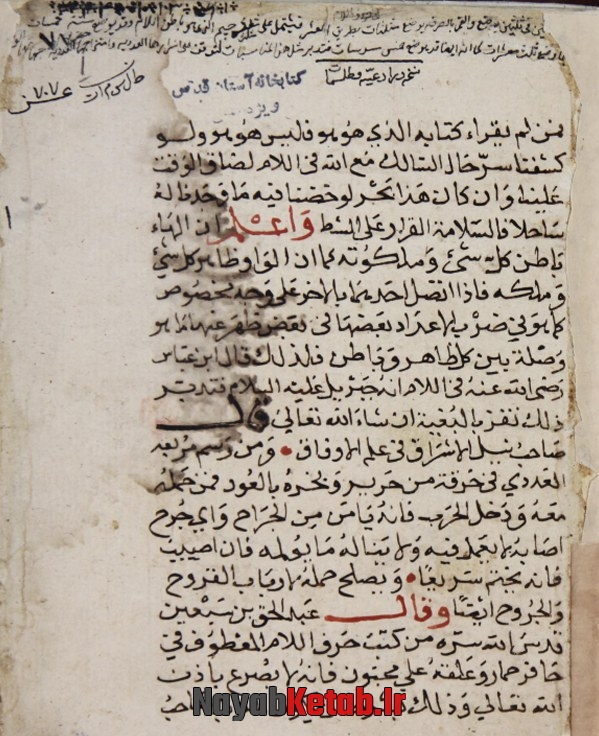 نسخه در ادعیه و طلسمات
کتابخانه آستان قدس
۷۰۷۷
فمن لم يقراء كتابه الذي هو هو فليس هو هو ولو
كشفنا سر حال السالك مع الله فى اللام لضاق الوقت
علينا وان كان هذا بحر لو خضنا فيه ما وجدنا له
ساحلا فالسلامة القرار على الشط واعلم ان الهاء
باطن كل شئ وملكوته كما ان الواو ظاهر كل شئ
وملكه فاذا اتصل احديهما بالاخر على وجه مخصوص
كما هو في ضرب الاعداد بعضها فى بعض ظهر عنهما ما هو
وصلة بين كل ظاهر وباطن فلذلك قال ابن عباس
رضى الله عنه فى اللام انه جبريل عليه السلام فتدبر
ذلك تفز بالبغية ان شاء الله تعالى قال
صاحب نيل الاشراق فى علم الاوفاق ومن رسم مربعه
العددي فى خرقة من حرير وبخره بالعود فمن حمله
معه ودخل الحرب فانه يامن من الجراح واي جرح
اصابه لا يعمل فيه ولا يناله ما يؤلمه فان اصيبت
فانه يختم سريعا ويصلح حمله لارباب القروح
والجروح ايضا وقال عبد الحق بن سبعين
قدس الله سره من كتب حرف اللام المعطوف في
حافر حمار وعلقه على مجنون فانه لا يصرع باذن
الله تعالي وذلك
NayabKetab.Ir